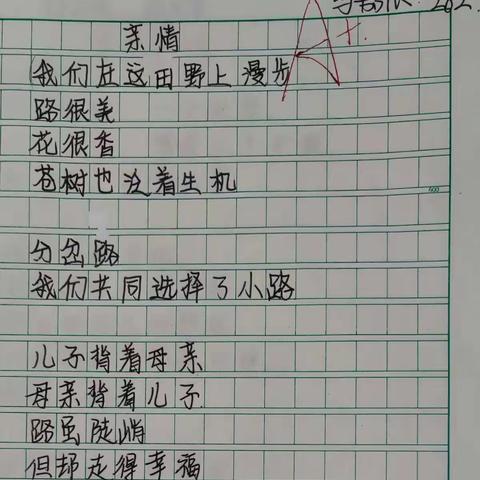 亲情
A+
我们在这田野上漫步
路很美
花很香
苍树也泛着生机
分岔路
我们共同选择了小路
儿子背着母亲
母亲背着儿子
路虽陡峭
但却走得幸福